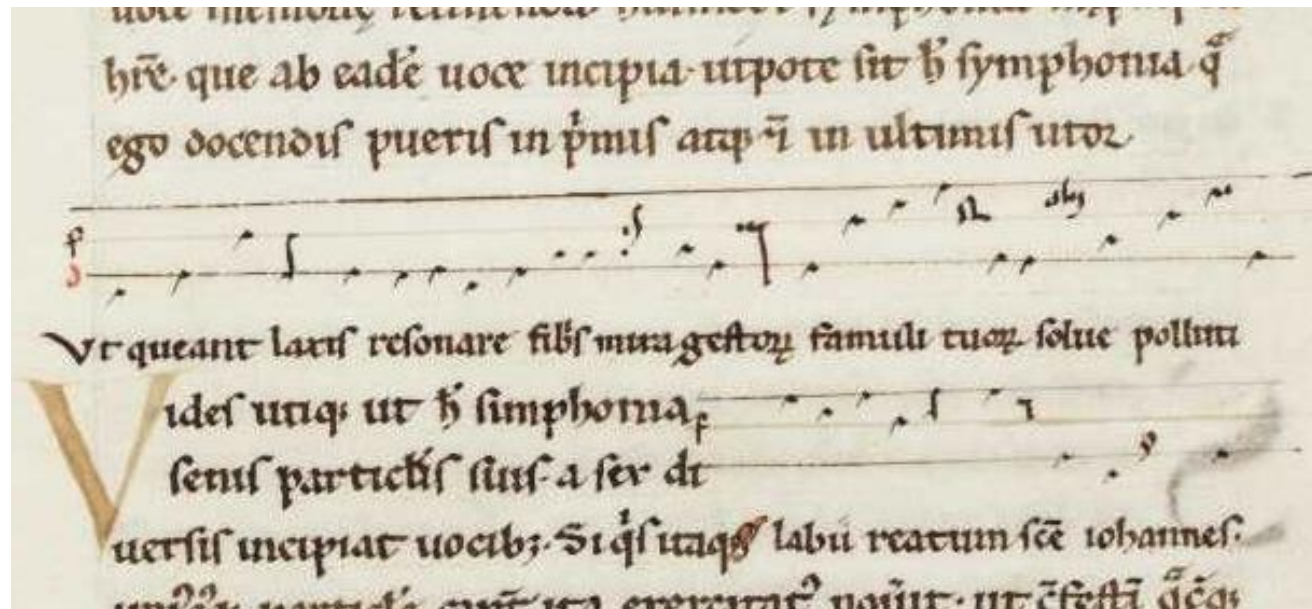 hr̄e· que ab eadē uoce incipia· utpote sit h̄ symphonia q̄
ego docendis pueris in p̍mis atq; ī in ultimis utor·
f
Vt queant laxis resonare fib̄s mira gestoꝝ famuli tuoꝝ solue polluti
Vides utiq; ut h̄ simphonia
f
senis particl̄is suis· a sex di
uersis incipiat uocib;· Si q̍s itaq; labii reatum sc̄e iohannes·